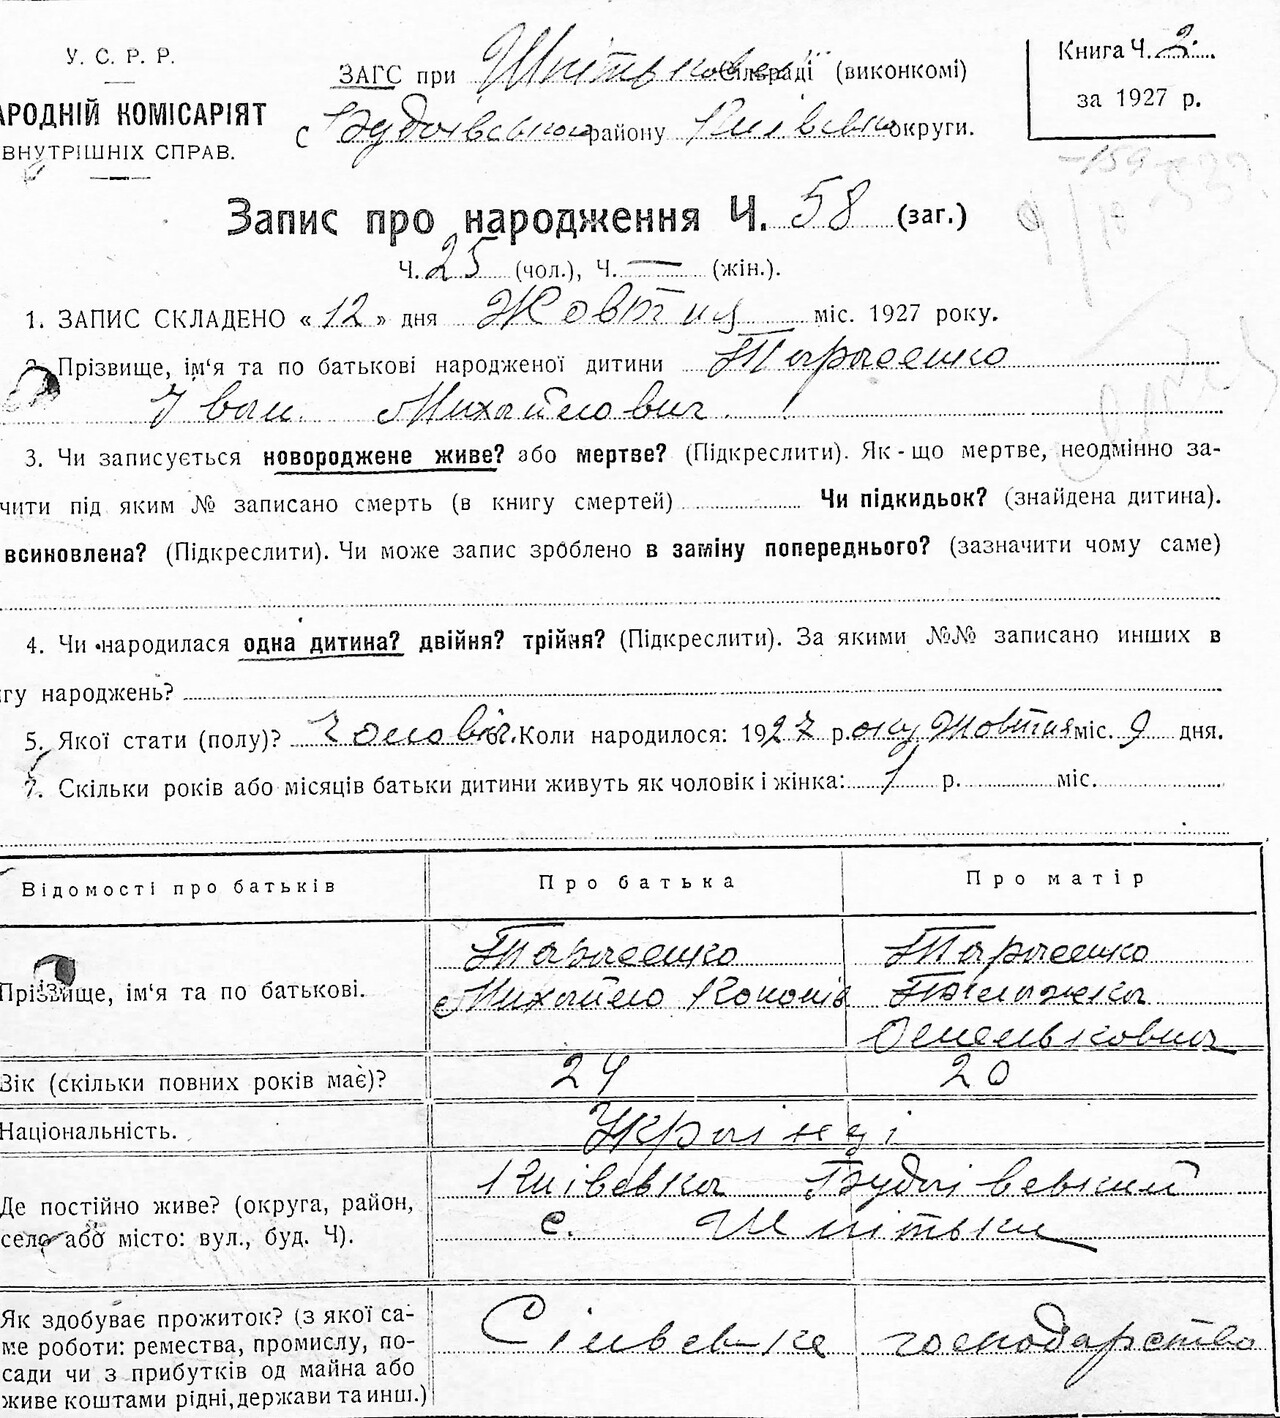 У. С. Р. Р.
АРОДНІЙ КОМІСАРІЯТ
ВНУТРІШНІХ СПРАВ.
ЗАГС при Шпітьковск сільраді (виконкомі)
с Будаївського району Київсько округи.
Книга Ч. 2.
за 1927 р.
Запис про народження Ч. 58 (заг.)
Ч. 25 (чол.), Ч. — (жін.).
1. ЗАПИС СКЛАДЕНО « 12 » дня Жовтня міс. 1927 року.
2. Прізвище, ім‘я та по батькові народженої дитини Тарасенко
Іван Михайлович.
3. Чи записується новороджене живе? або мертве? (Підкреслити). Як - що мертве, неодмінно за-
чити під яким № записано смерть (в книгу смертей) Чи підкидьок? (знайдена дитина).
всиновлена? (Підкреслити). Чи може запис зроблено в заміну попереднього? (зазначити чому саме)
4. Чи народилася одна дитина? двійня? трійня? (Підкреслити). За якими №№ записано инших в
гу народжень?
5. Якої стати (полу)? Чоловіч. Коли народилося: 1927 року Жовтня міс. 9 дня.
7. Скільки років або місяців батьки дитини живуть як чоловік і жінка: 1 р. міс.
Відомості про батьків Про батька Про матір
Прізвище, ім‘я та по батькові. Тарасенко Тарасенко
Михайло Кононів Палажка
Омельковна
Зік (скільки повних років має)? 24 20
Національність. Українці
Де постійно живе? (округа, район, Київська Будаївський
село або місто: вул., буд. Ч). с. Шпітьки
Як здобуває прожиток? (з якої са-
ме роботи: ремества, промислу, по- Сільське господарство
сади чи з прибутків од майна або
живе коштами рідні, держави та инш.)